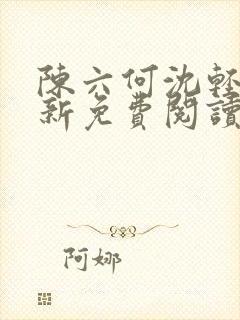 陳六何沈輕
新免費閱讀
阿娜